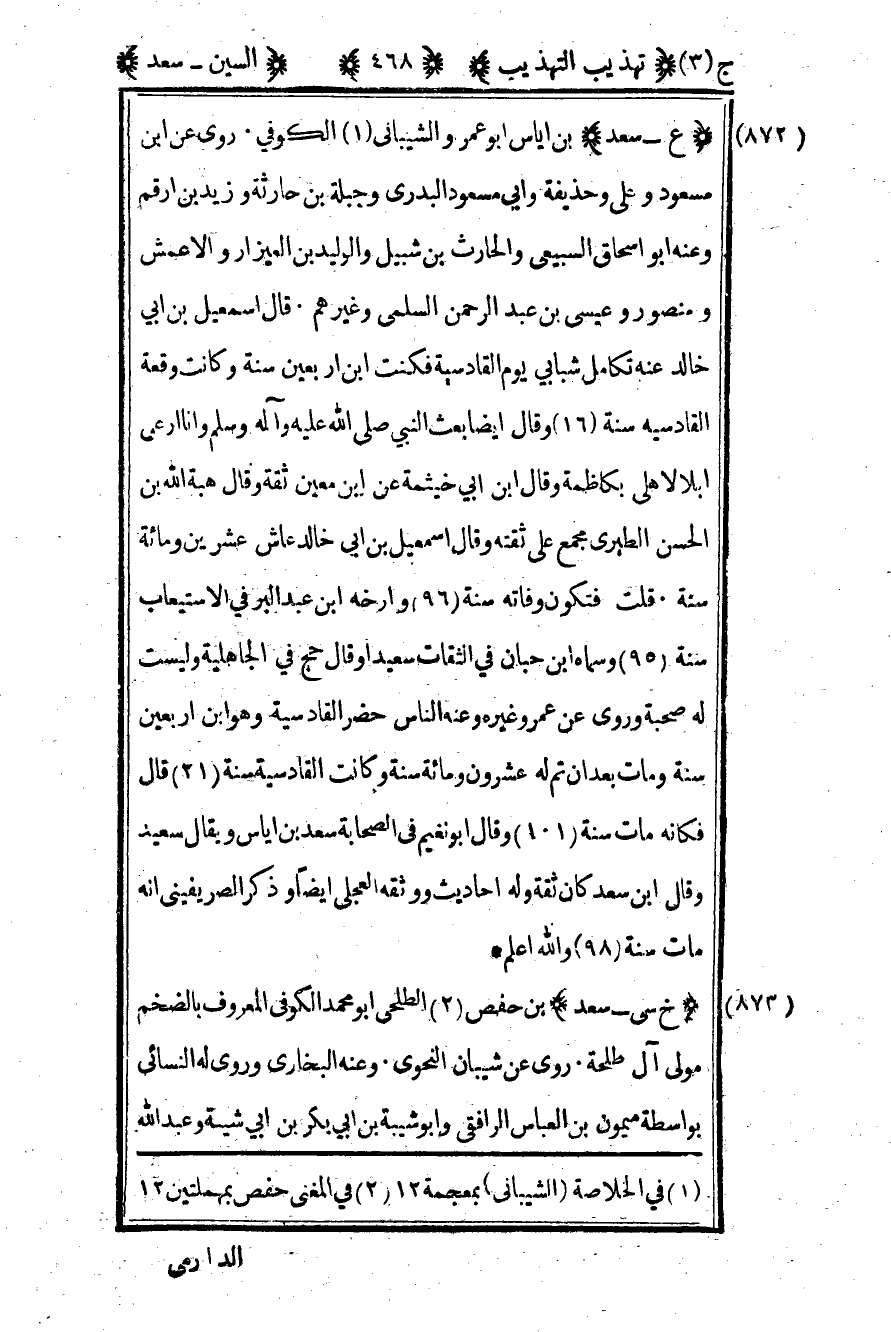 ج (٣) ﴿ تهذيب التهذيب ﴾ ﴿ ٤٦٨ ﴾ ﴿ السين ـ سعد ﴾
(٨٧٢) ﴿ ع ـ سعد ﴾ بن اياس ابو عمر و الشيبانى (١) الكوفي ٠ روى عن ابن
مسعود و على وحذيفة وابي مسعود البدرى وجبلة بن حارثة و زيد بن ارقم
وعنه ابو اسحاق السبيعى والحارث بن شبيل والوليد بن العيزار و الاعمش
و منصور و عيسى بن عبد الرحمن السلمى وغيرهم ٠ قال اسمعيل بن ابي
خالد عنه تكامل شبابي يوم القادسية فكنت ابن اربعين سنة وكانت وقعة
القادسيه سنة (١٦) وقال ايضا بعث النبي صلى الله عليه وآله وسلم وانا ارعى
ابلا لاهلى بكاظمة وقال ابن ابي خيثمة عن ابن معين ثقة وقال هبة الله بن
الحسن الطبرى مجمع على ثقته وقال اسمعيل بن ابي خالد عاش عشرين ومائة
سنة ٠ قلت فتكون وفاته سنة (٩٦) وارخه ابن عبد البر في الاستيعاب
سنة (٩٥) وسماه ابن حبان في الثقات سعيدا وقال حج في الجاهلية وليست
له صحبة وروى عن عمر وغيره وعنه الناس حضر القادسية وهو ابن اربعين
سنة ومات بعد ان تم له عشرون ومائة سنة وكانت القادسية سنة (٢١) قال
فكانه مات سنة (١٠١) وقال ابو نعيم فى الصحابة سعد بن اياس ويقال سعيد
وقال ابن سعد كان ثقة وله احاديث ووثقه العجلى ايضاً و ذكر الصريفينى انه
مات سنة (٩٨) والله اعلم *
(٨٧٣) ﴿ خ سى ـ سعد ﴾ بن حفص (٢) الطلحى ابو محمد الكوفى المعروف بالضخم
مولى آل طلحة ٠ روى عن شيبان النحوى ٠ وعنه البخارى وروى له النسائى
بواسطة ميمون بن العباس الرافقى وابو شيبة بن ابي بكر بن ابي شيبة وعبد الله
(١) في الخلاصة (الشيبانى) بمعجمة ١٢ (٢) في المغنى حفص بمهملتين ١٢
الدارمى